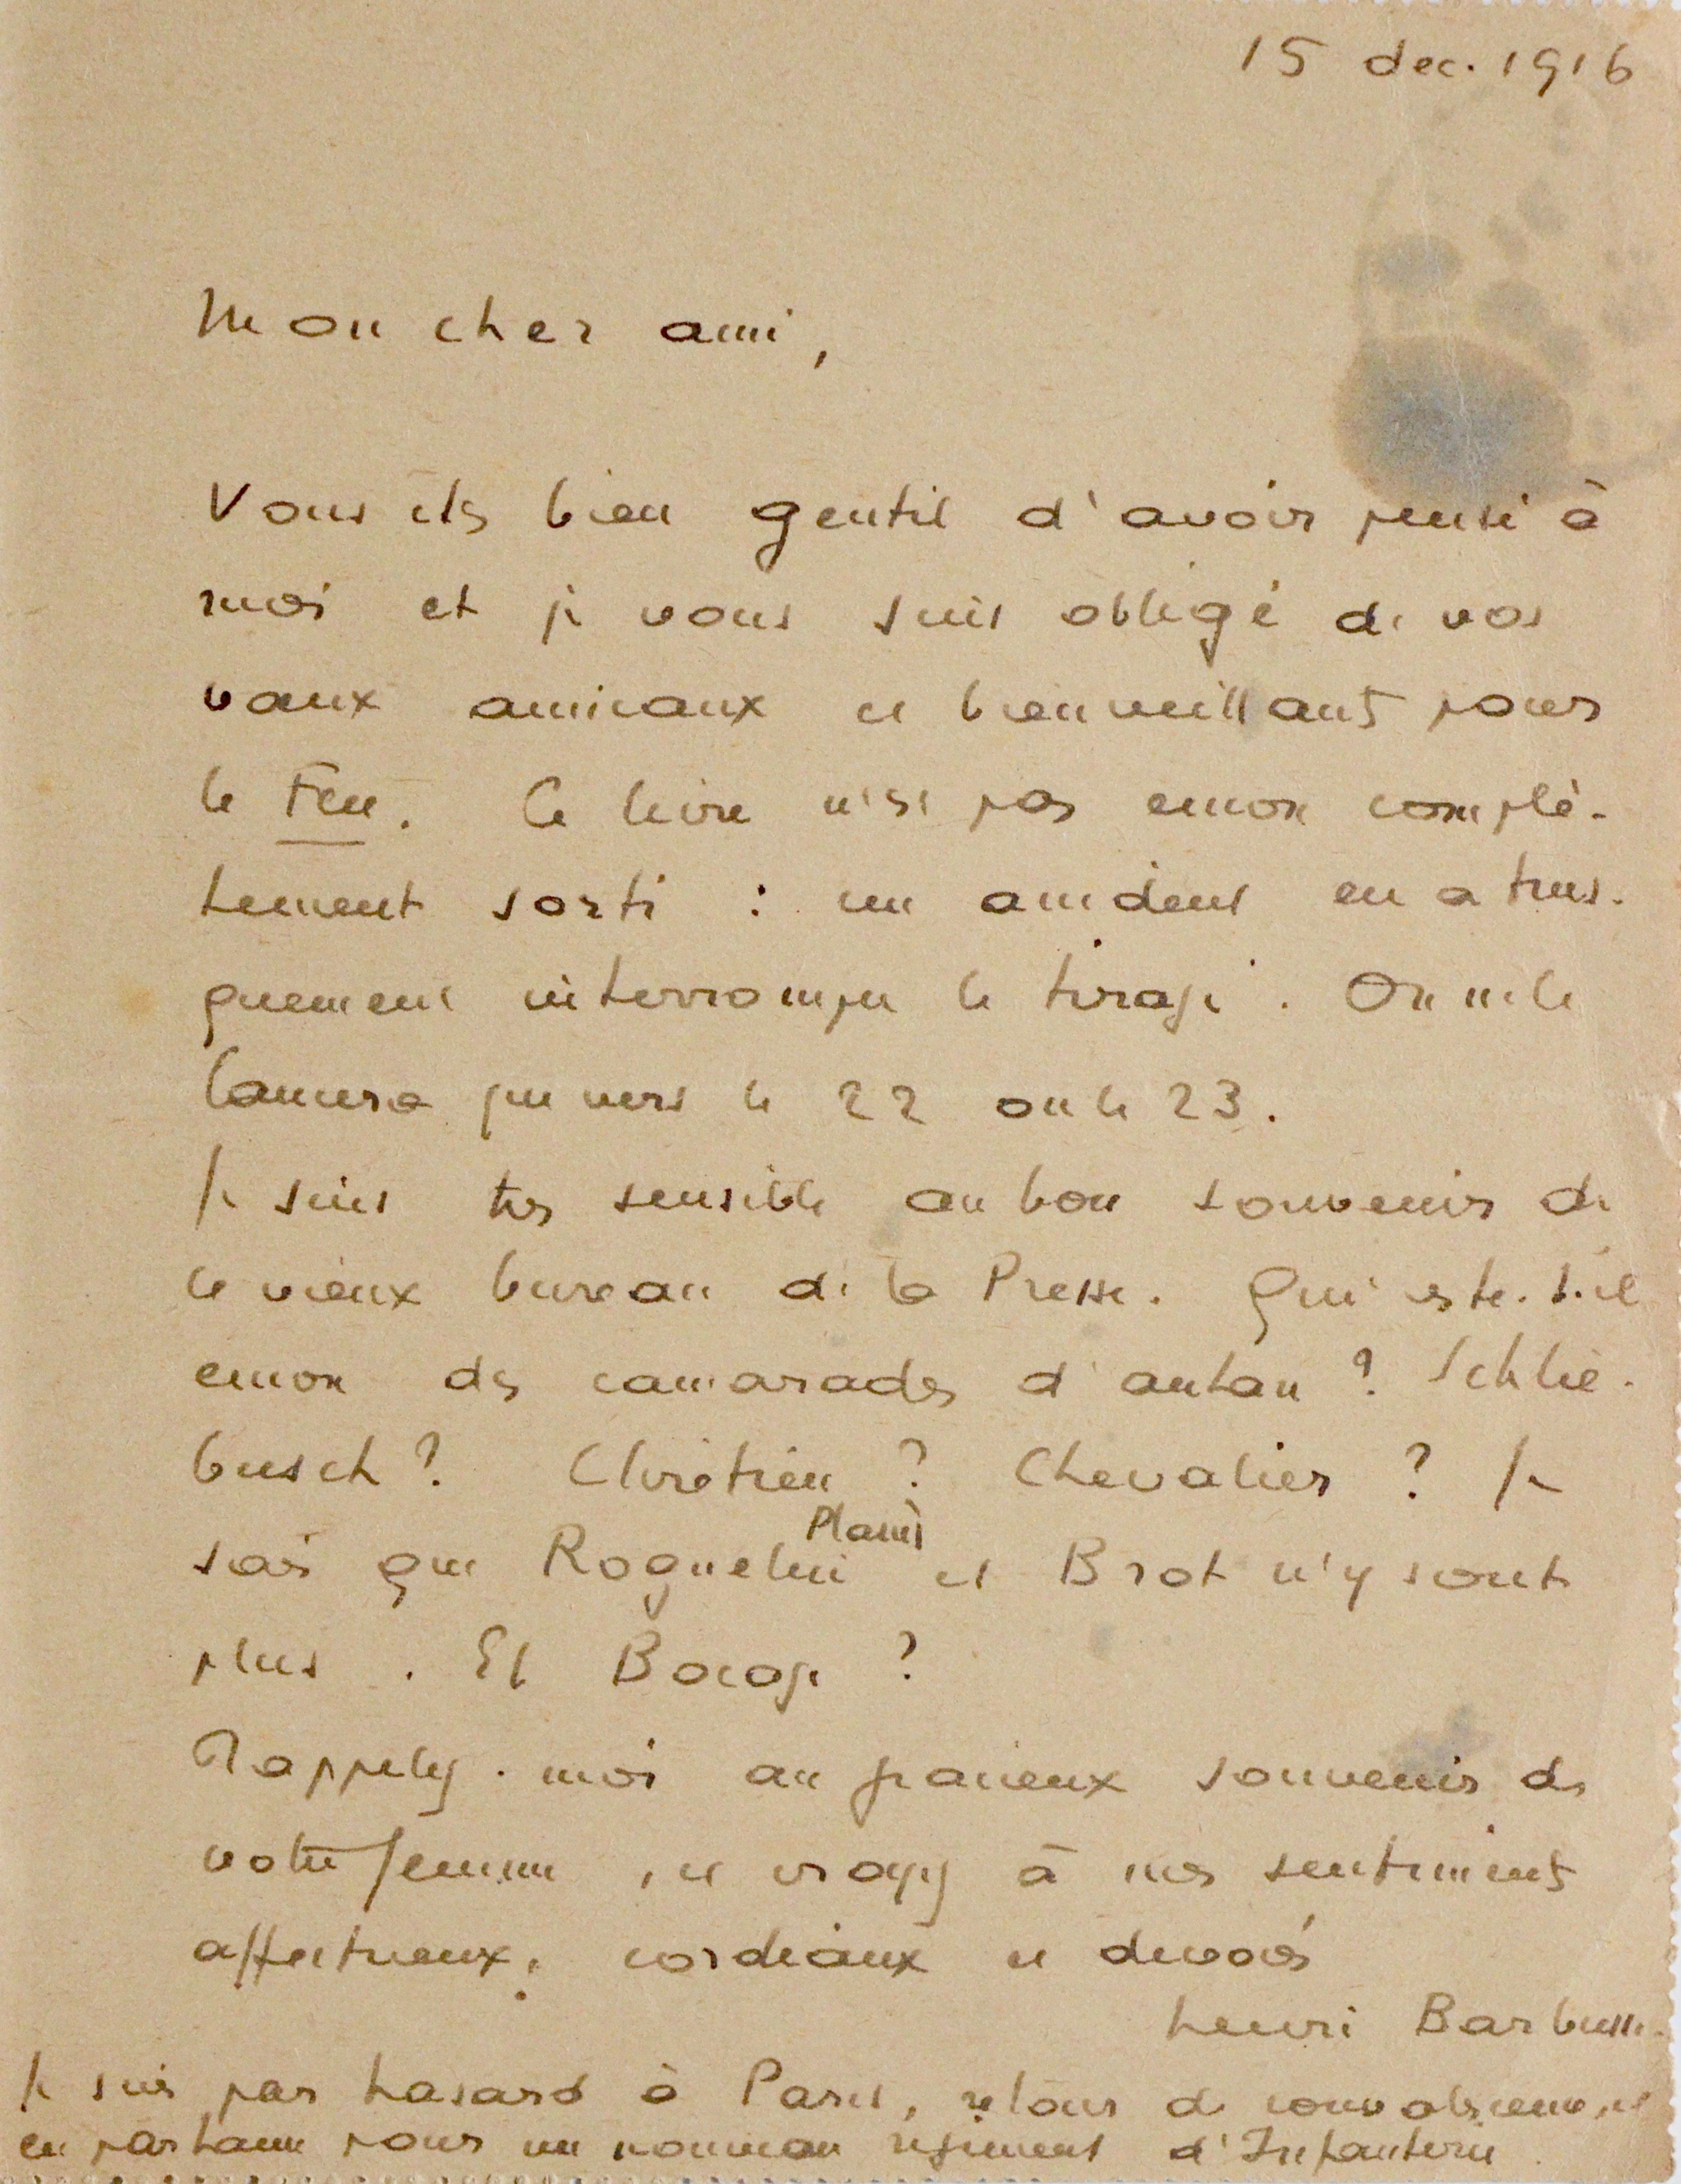 15 dec. 1916
Mon cher ami,
Vous êtes bien gentil d'avoir pensé à
moi et je vous suis obligé de vos
vœux amicaux et bienveillants pour
le Feu. Ce livre n'est pas encore complè-
tement sorti : un accident en a brus-
quement interrompu le tirage. On ne le
lancera que vers le 22 ou le 23.
Je suis très sensible au bon souvenir de
ce vieux bureau de la Presse. Qui reste-t-il
encore des camarades d'antan ? Schlié-
busch ? Chrétien ? Chevalier ? Je
Planès
sais que Roquelin et Brot n'y sont
plus. Et Bocage ?
Rappelez-moi au gracieux souvenir de
votre femme, et croyez à mes sentiments
affectueux, cordiaux et dévoués
Henri Barbusse.
Je suis par hasard à Paris, retour de convalescence, et
en partance pour un nouveau régiment d'Infanterie.